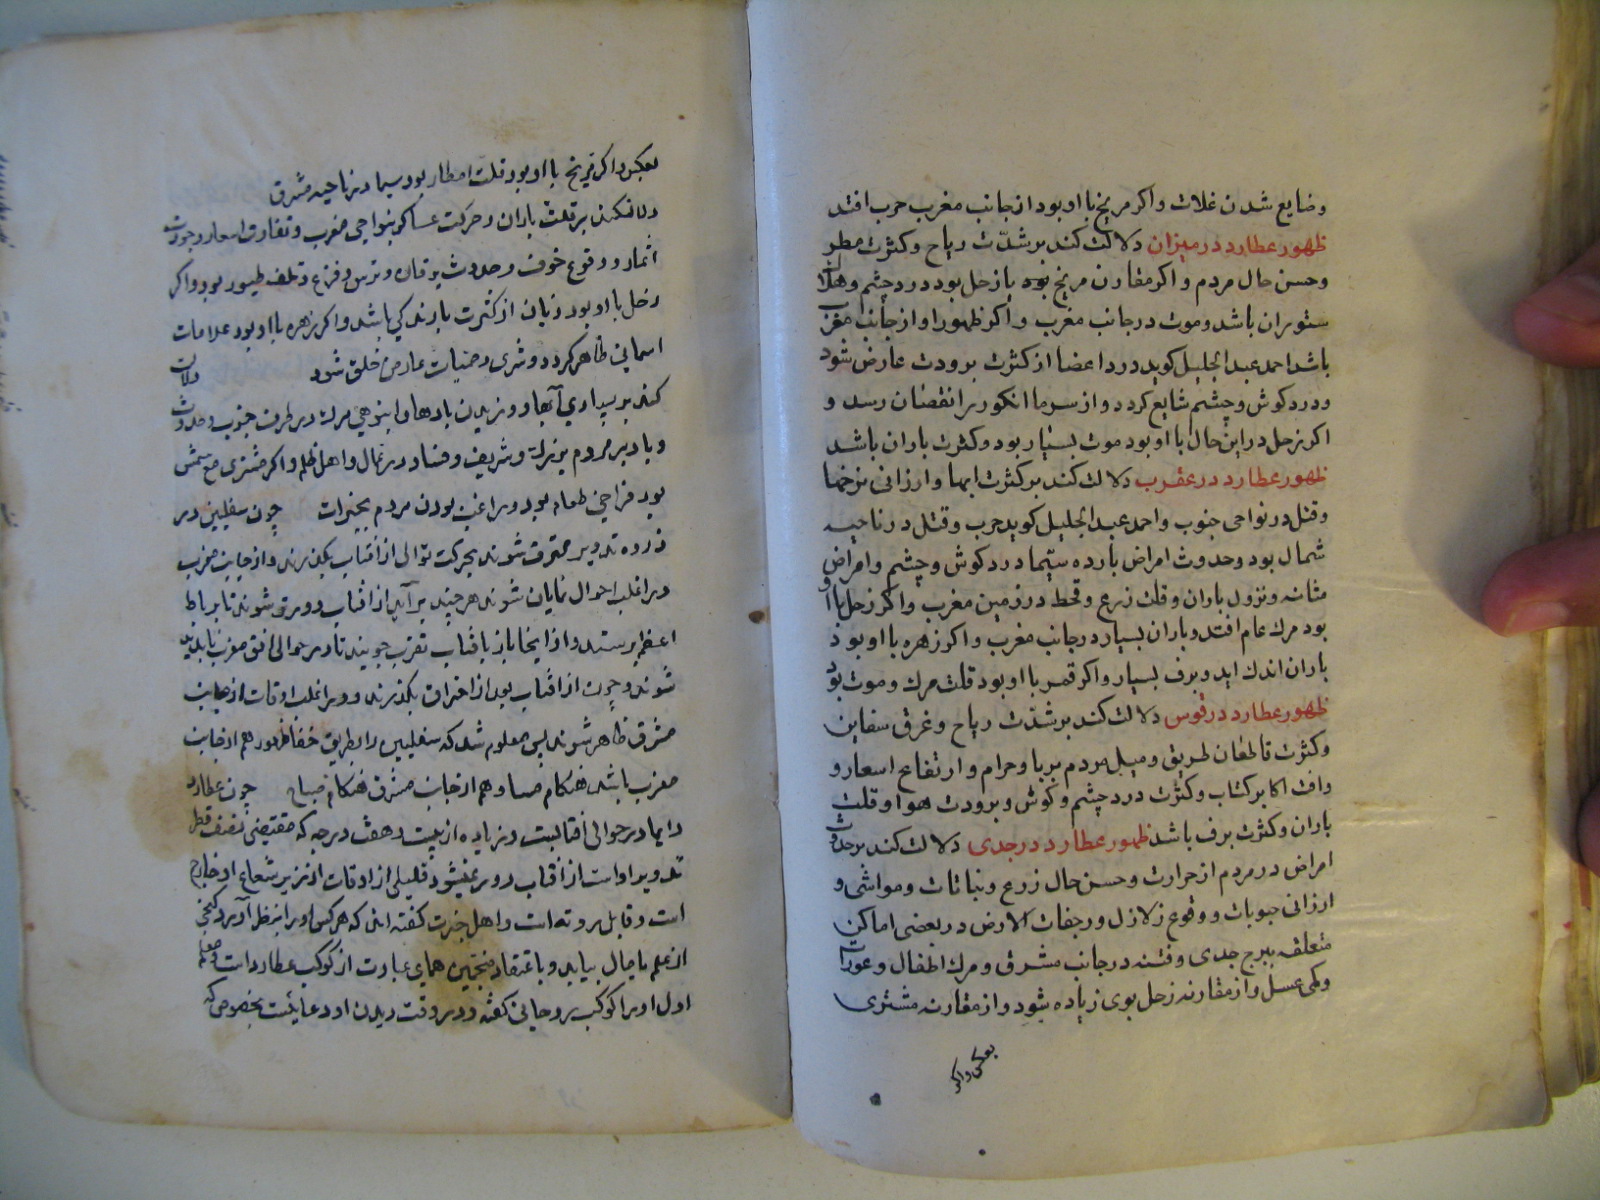 وضایع شدن غلات واکر مریخ با او بود از جانب مغرب حرب افتد
ظهور عطارد در میزان دلالت کند بر شدّت ریاح وکثرت مطر
وحسن حال مردم واکر مقارن مریخ بود یا زحل بود درد چشم وهلاک
ستوران باشد وموت در جانب مغرب واکر ظهور او از جانب مغرب
باشد احمد عبد الجلیل کوید درد اعضا از کثرت برودت عارض شود
ودرد کوش وچشم شایع کردد واز سرما انکور را نقصان رسد و
اکر زحل در این حال با او بود موت بسیار بود وکثرت باران باشد
ظهور عطارد در عقرب دلالت کند بر کثرت ابها وارزانی نرخها
وقتل در نواحی جنوب واحمد عبد الجلیل کوید حرب وقتل در ناحیه
شمال بود وحدوث امراض بارده سیّما درد کوش وچشم وامراض
مثانه ونزول باران وقلت زرع وقحط در زمین مغرب واکر زحل با او
بود مرك عام افتد وباران بسیار در جانب مغرب واکر زهره با او بود
باران اندك اید وبرف بسیار واکر قمر با او بود قلت مرك وموت بود
ظهور عطارد در قوس دلالت کند بر شدّت ریاح وغرق سفاین
وکثرت قاطعان طریق ومیل مردم بربا وحرام وارتفاع اسعار و
وافت اکابر کتاب وکثرت درد چشم وکوش وبرودت هوا وقلت
باران وکثرت برف باشد ظهور عطارد در جدی دلالت کند بر حدوث
امراض در مردم از حرارت وحسن حال زرع ونباتات ومواشی و
ارزانی حبوبات ووقوع زلازل ورجفات الارض در بعضی اماکن
متعلقه ببرج جدی وفتنه در جانب مشرق ومرك اطفال وعورات
وکمی عسل واز مقارنه زحل بوی زیاده شود واز مقارنه مشتری
بعکس واکر
بعکس واکر مریخ با او بود قلت امطار بود سیما در ناحیه مشرق
دلالت کند بر قلت باران وحرکت عساکر بنواحی مغرب وتفاوت اسعار وجودت
اثمار ووقوع خوف وحدوث یرقان وترس وفزع وتلف طیور بود واکر
زحل با او بود زیان از کثرت بارندکی باشد واکر زهره با او بود علامات
اسمانی ظاهر کردد وشری وحمیات عارض خلق شود دلالت
کند بر بسیاری آبها ووزیدن بادها وانبوهی مرك در طرف جنوب وحدوث
وبا در مردم بزرك وشریف وفساد در عمال واهل قلم واکر مشتری مع شمس
بود فراخی طعام بود وراغب بودن مردم بخیرات چون سفلیین در
ذروه تدویر محترق شوند بحرکت توالی از آفتاب بکذرند واز جانب مغرب
در اغلب احوال نمایان شوند هر چند بر آید از افتاب دورتر شوند تا برباط
اعظم برسند واز ایخا باز بافتاب تقرب جویند تا در حوالی افق مغرب ناپدید
شوند وچون از افتاب بعد از احتراق بکذرند ودر اغلب اوقات از جانب
مشرق ظاهر شوند پس معلوم شد که سفلیین را بطریق خفا ظهور هم از جانب
مغرب باشد هنکام مسا وهم از جانب مشرق هنکام صباح چون عطارد
دایما در حوالی آفتابست وزیاده از بیست وهفت درجه که مقتضی نصف قطر
تدویر اوست از آفتاب دور نمیشود قلیلی از اوقات از زیر شعاع او خارج
است وقابل رویه است واهل خبرت کفته اند که هر کس او را بنظر آورد کنجی
از علم یا مال بیابد وباعتقاد منجمین همای عبارت از کوکب عطارد است ومعلم
اول او را کوکب روحانی کفته ودر وقت دیدن او دعایئست بخصوص که